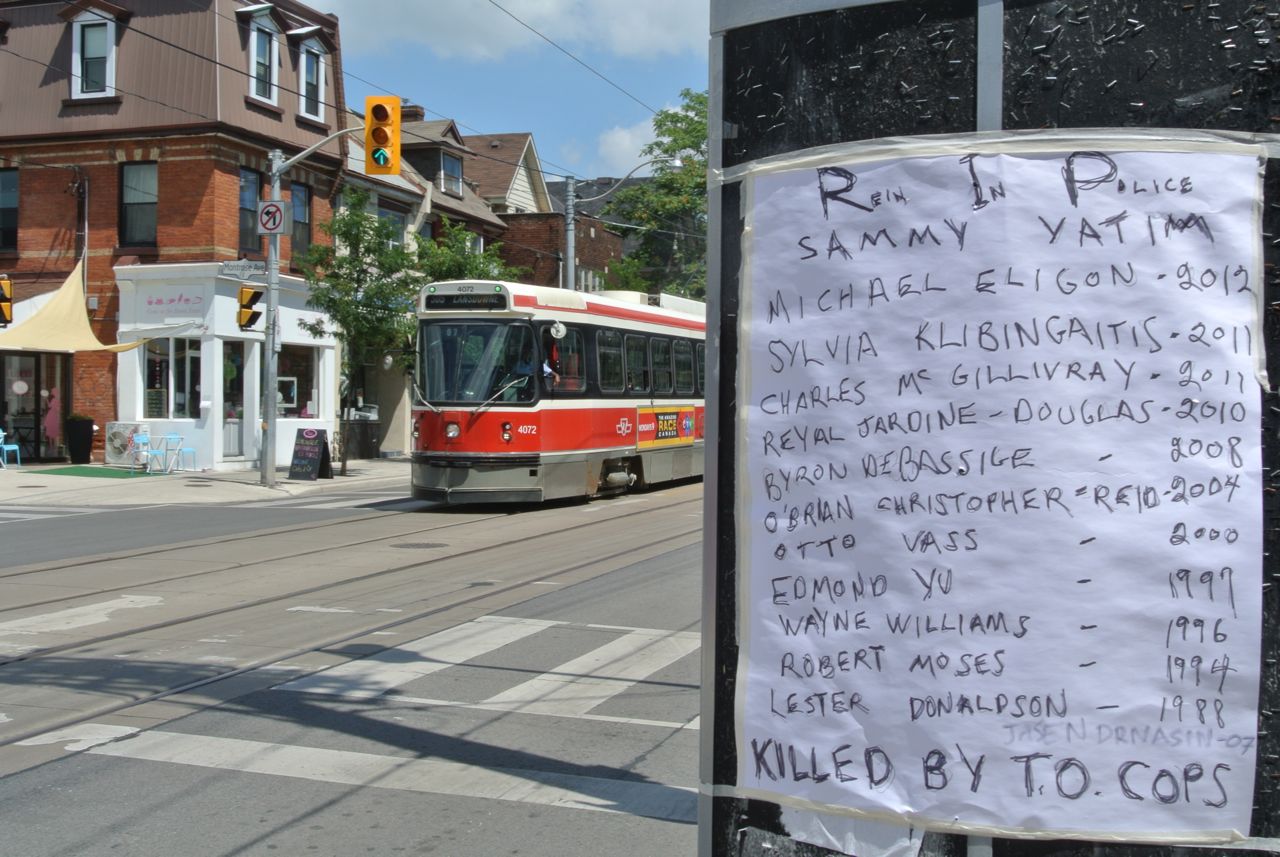 Montrose Ave
4072
505 LANSDOWNE
4072
THE AMAZING
RACE
CANADA
CTV
REIN IN POLICE
SAMMY YATIM
MICHAEL ELIGON - 2012
SYLVIA KLIBINGAITIS - 2011
CHARLES Mc GILLIVRAY - 2011
REYAL JARDINE - DOUGLAS - 2010
BYRON DEBASSIGE - 2008
O'BRIAN CHRISTOPHER = REID - 2004
OTTO VASS - 2000
EDMOND YU - 1997
WAYNE WILLIAMS - 1996
ROBERT MOSES - 1994
LESTER DONALDSON - 1988
KILLED BY T.O. COPS